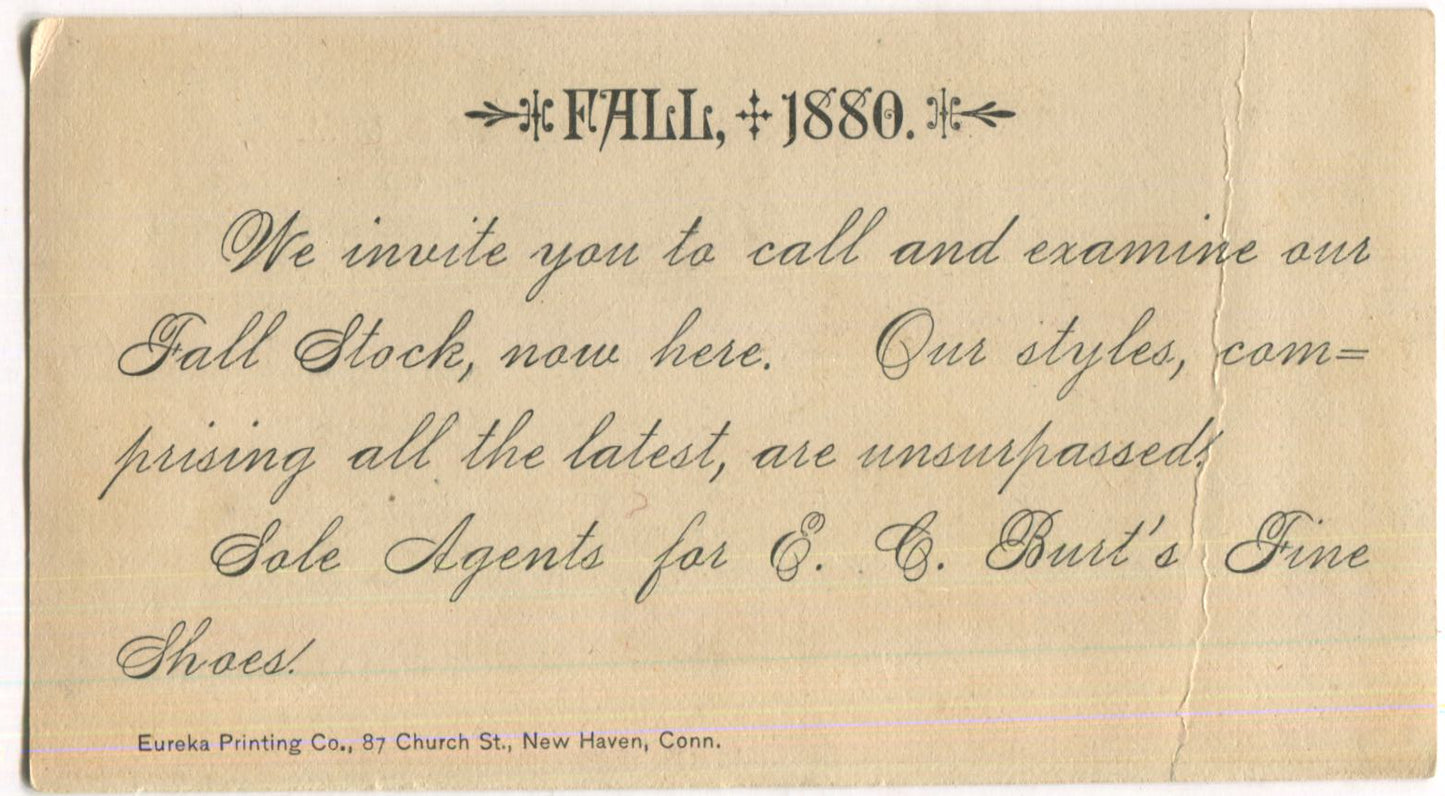 FALL, 1880.
We invite you to call and examine our
Fall Stock, now here. Our styles, com=
prising all the latest, are unsurpassed!
Sole Agents for E. C. Burt's Fine
Shoes!
Eureka Printing Co., 87 Church St., New Haven, Conn.